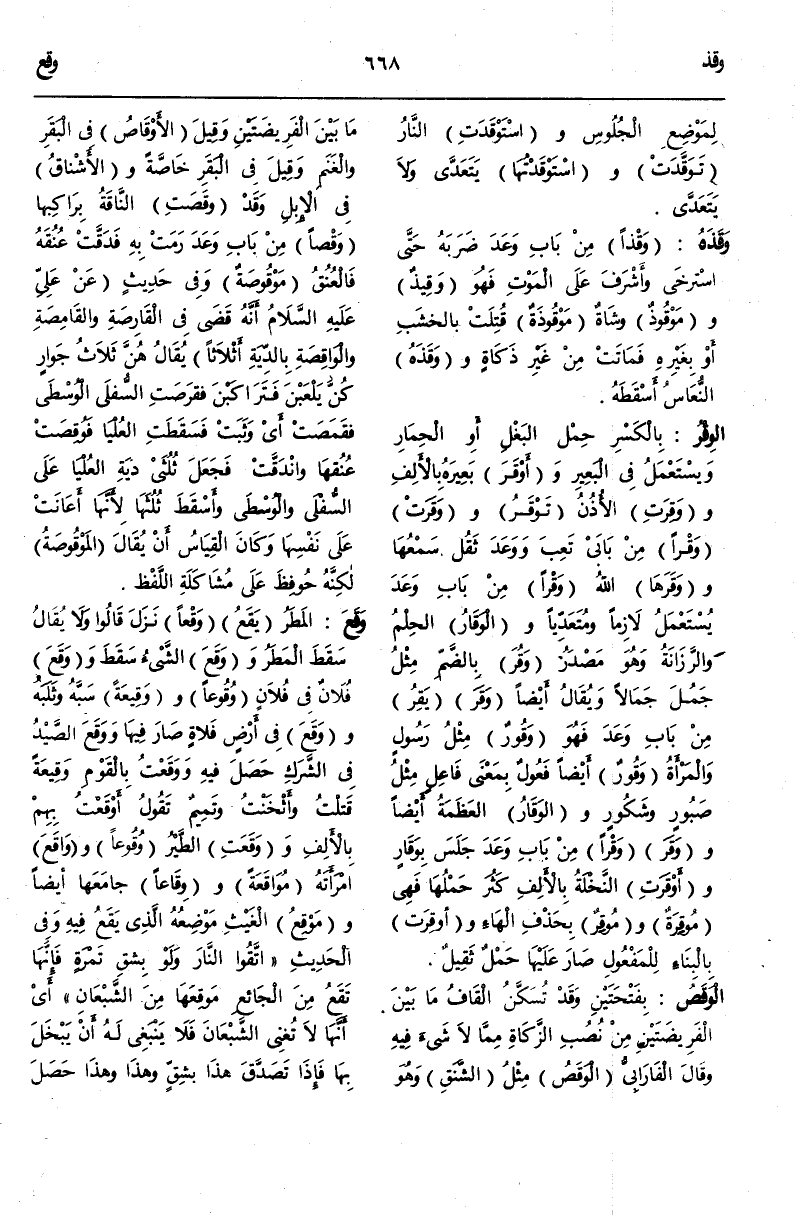 وقذ
٦٦٨
وقع
لِمَوْضِعِ الْجُلُوسِ و ( اسْتَوْقَدَتِ ) النَّارُ
( تَوَقَّدَتْ ) و ( اسْتَوْقَدْتُهَا ) يَتَعَدَّى وَلاَ
يَتَعَدَّى .
وَقَذَهُ : ( وَقْذاً ) مِنْ بَابِ وَعَدَ ضَرَبَهُ حَتَّى
اسْتَرخَى وأَشْرَفَ عَلَى الْمَوْتِ فَهُوَ ( وَقِيذٌ )
و ( مَوْقُوذٌ ) وشَاةٌ ( مَوْقُوذَةٌ ) قُتِلَتْ بالخشَبِ
أَوْ بغَيْرِهِ فَمَاتَتْ مِنْ غَيْرِ ذَكَاةٍ و ( وَقَذَهُ )
النُّعَاسُ أَسْقَطَهُ .
الوِقْرُ : بِالْكَسْرِ حِمْل الْبَغْلِ أَوِ الْحِمَارِ
وَيسْتَعْمَلُ فِى الْبَعِيرِ وَ ( أَوْقَرَ ) بَعِيرَهُ بالأَلِفِ
و ( وَقِرَتِ ) الأُذُنُ ( تَوْقَرُ ) و ( وَقَرَتْ )
( وَقْراً ) مِنْ بَابَىْ تَعِبَ وَوَعَدَ ثَقُلَ سَمْعُهَا
و ( وَقَرَهَا ) اللهُ ( وَقْراً ) مِنْ بَابِ وَعَدَ
يُسْتَعْمَلُ لاَزِماً ومُتَعَدِّياً و ( الْوَقَارُ ) الحِلْمُ
والرَّزَانَةُ وَهُوَ مَصْدَرُ ( وَقُرَ ) بِالضَّمِّ مِثْلُ
جَمُلَ جَمَالاً وَيُقَالُ أَيْضاً ( وَقَرَ ) ( يَقِرُ )
مِنْ بَابِ وَعَدَ فَهُوَ ( وَقُورٌ ) مِثْلُ رَسُولٍ
وَالْمَرْأَةُ ( وَقُورٌ ) أَيْضاً فَعُولٌ بِمَعْنَى فَاعِلٍ مِثْلُ
صَبُورٍ وشَكُورٍ و ( الوَقَارُ ) العَظَمَةُ أَيْضاً
و ( وَقَرَ ) ( وَقْراً ) مِنْ بَابِ وَعَدَ جَلَسَ بِوَقَارٍ
و ( أَوْقَرَتِ ) النَّخْلَةُ بِالأَلِفِ كَثُرَ حَمْلُهَا فَهِى
( مُوقِرَةٌ ) و ( مُوقِرٌ ) بِحَذْفِ الْهَاءِ و ( أُوقِرَت )
بِالْبنَاءِ لِلْمَفْعُولِ صَارَ عَلَيْهَا حَمْلٌ ثَقِيلٌ .
الوَقَصُ : بِفَتْحَتَيْنِ وَقَدْ تُسَكَّنُ الْقَافُ مَا بَيْنَ
الْفَرِيضَتَيْنِ مِنْ نُصُبِ الزَّكَاةِ مِمَّا لاَ شَىءَ فِيهِ
وقَالَ الْفَارَابِىُّ ( الْوَقَصُ ) مِثْلُ ( الشَّنَقِ ) وَهُوَ
مَا بَيْنَ الْفَرِيضَتَيْنِ وَقِيلَ ( الأَوْقَاصُ ) فِى الْبَقَرِ
والْغَنَمِ وَقِيلَ فِى الْبَقَرِ خَاصَّةً و ( الأَشْنَاقُ )
فِى الْإِبِلِ وَقَدْ ( وقَصَتِ ) النَّاقَةُ بِرَاكِبِها
( وَقْصاً ) مِنْ بَابِ وَعَدَ رَمَتْ بِهِ فَدَقَّتْ عُنُقَهُ
فَالْعُنُقُ ( مَوْقُوصَةٌ ) وَفِى حَدِيثٍ ( عَنْ عَلِيِّ
عَلَيهِ السَّلامُ أَنَّهُ قَضَى فِى الْقَارِصَةِ والقَامِصَةِ
والْوَاقِصَةِ بِالدِّيَةِ أَثْلاَثاً ) يُقَالُ هُنَّ ثَلاَثُ جَوارٍ
كنَّ يَلْعَبْنَ فَتَرَاكَبْنَ فقرَصَتِ السُّفلَى الْوُسْطَى
فقمَصَتْ أَىْ وَثَبَتْ فَسَقَطَتِ الْعُلْيَا فَوُقِصَتْ
عُنُقهَا وانْدَقَّتْ فَجَعَلَ ثُلُثَىْ دِيَةِ الْعُلْيَا عَلَى
السُّفْلَى والْوُسْطَى وأَسْقَطَ ثُلُثَهَا لِأَنَّهَا أَعَانَتْ
عَلَى نَفْسِهَا وَكَانَ الْقِيَاسُ أَنْ يُقَالَ ( المَوْقُوصَةُ )
لٰكِنَّهُ حُوفِظَ عَلَى مُشَاكَلَةِ اللَّفْظِ .
وَقَعَ : المَطَرُ ( يَقَعُ ) ( وَقْعاً ) نَزَلَ قَالُوا وَلاَ يُقَالُ
سَقَطَ الْمَطَرُ وَ ( وَقَعَ ) الشَّىْءُ سَقَطَ وَ ( وَقَعَ )
فُلاَنٌ فِى فُلاَنٍ ( وُقُوعاً ) و ( وَقِيعَةً ) سَبَّهُ وثَلَبَهُ
و ( وَقَعَ ) فِى أَرْضِ فَلاَةٍ صَارَ فِيهَا وَوَقَعَ الصَّيْدُ
فِى الشَّرَكِ حَصَلَ فِيهِ وَوَقَعْتُ بِالْقَوْمِ وَقِيعَةً
قَتَلْتُ وأَثْخَنْتُ وتَمِيمٌ تَقُولُ أَوْقَعْتُ بِهِمْ
بِالْأَلِفِ وَ ( وَقَعَتِ ) الطَّيْرُ ( وُقُوعاً ) و ( وَاقَعَ )
امْرَأَتَهُ ( مُوَاقَعَةً ) و ( وِقَاعاً ) جامَعَها أيضاً
و ( مَوْقِعُ ) الْغَيْثِ مَوْضِعُهُ الَّذِى يَقَعُ فِيهِ وَفِى
الْحَدِيثِ « اتَّقُوا النَّارَ وَلَوْ بِشِقِ تَمْرَةٍ فَإِنَّهَا
تَقَعُ مِنَ الْجَائِعِ مَوقِعَهَا مِنَ الشَّبْعَانِ » أَىْ
أَنَّهَا لاَ تُغنِى الشَّبْعَانَ فَلاَ يَنْبَغِى لَهُ أَنْ يَبْخَلَ
بِهَا فَإِذَا تَصَدَّقَ هٰذَا بشِقٍّ وهٰذَا وهٰذَا حَصَلَ